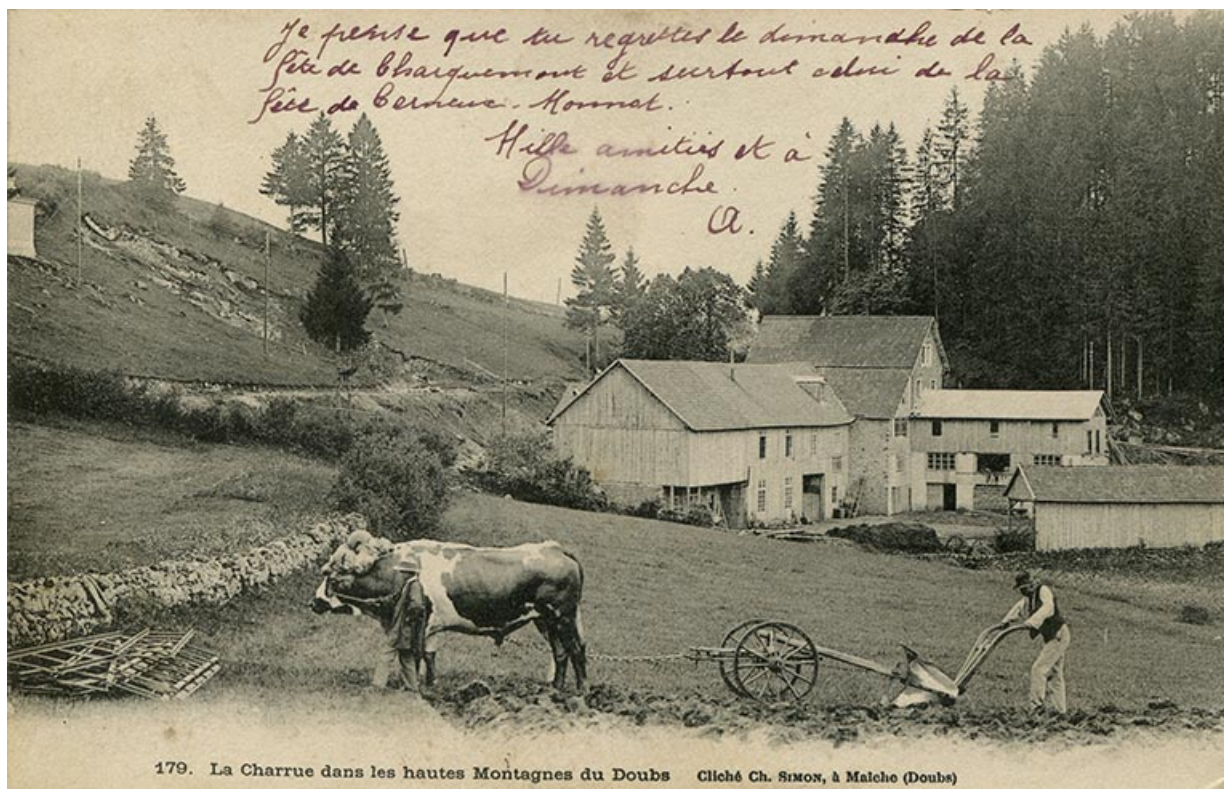 Je pense que tu regrettes le dimanche de la
fête de Charquemont et surtout celui de la
fête de Cerneux-Monnot.
Mille amitiés et à
Dimanche.
A.
179. La Charrue dans les hautes Montagnes du Doubs Cliché Ch. SIMON, à Maiche (Doubs)